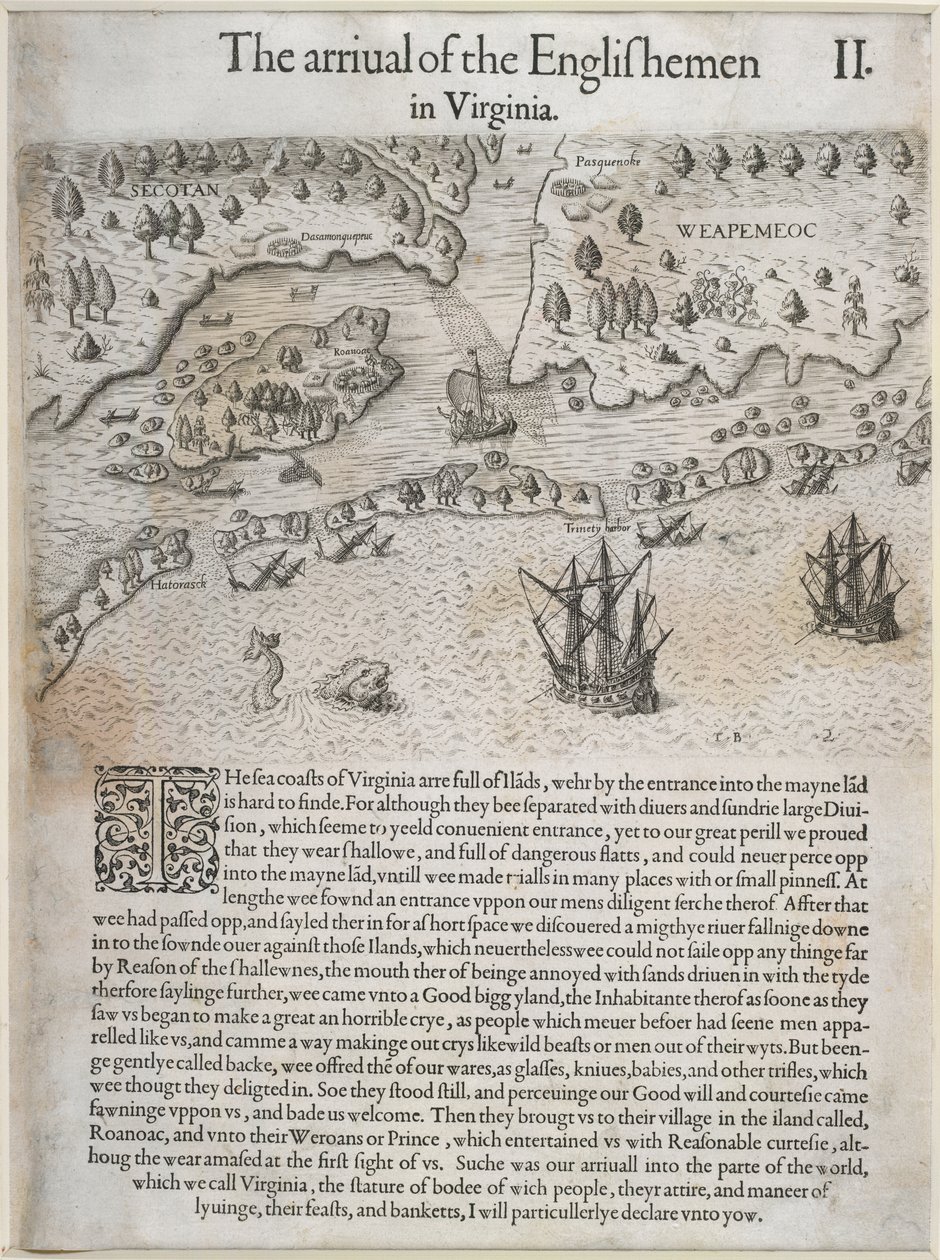 The arriual of the Engliſhemen
II.
in Virginia.
Pasquenoke
SECOTAN
WEAPEMEOC
Dasamonquepeuc
Roanoac
Trinety harbor
Hatorasck
T B
2
THe ſea coaſts of Virginia arre full of Ilãds, wehr by the entrance into the mayne lãd
is hard to finde. For although they bee ſeparated with diuers and ſundrie large Diui-
ſion, which ſeeme to yeeld conuenient entrance, yet to our great perill we proued
that they wear ſhallowe, and full of dangerous flatts, and could neuer perce opp
into the mayne lãd, vntill wee made trialls in many places with or ſmall pinneſſ. At
lengthe wee fownd an entrance vppon our mens diligent ſerche therof. Affter that
wee had paſſed opp, and ſayled ther in for a ſhort ſpace we diſcouered a migthye riuer fallnige downe
in to the ſownde ouer againſt thoſe Ilands, which neuertheleſſ wee could not ſaile opp any thinge far
by Reaſon of the ſhallewnes, the mouth ther of beinge annoyed with ſands driuen in with the tyde
therfore ſaylinge further, wee came vnto a Good bigg yland, the Inhabitante therof as ſoone as they
ſaw vs began to make a great an horrible crye, as people which meuer befoer had ſeene men appa-
relled like vs, and camme a way makinge out crys like wild beaſts or men out of their wyts. But been-
ge gentlye called backe, wee offred thẽ of our wares, as glaſſes, kniues, babies, and other trifles, which
wee thougt they deligted in. Soe they ſtood ſtill, and perceuinge our Good will and courteſie came
fawninge vppon vs, and bade us welcome. Then they brougt vs to their village in the iland called,
Roanoac, and vnto their Weroans or Prince, which entertained vs with Reaſonable curteſie, alt-
houg the wear amaſed at the firſt ſight of vs. Suche was our arriuall into the parte of the world,
which we call Virginia, the ſtature of bodee of wich people, theyr attire, and maneer of
lyuinge, their feaſts, and banketts, I will particullerlye declare vnto yow.